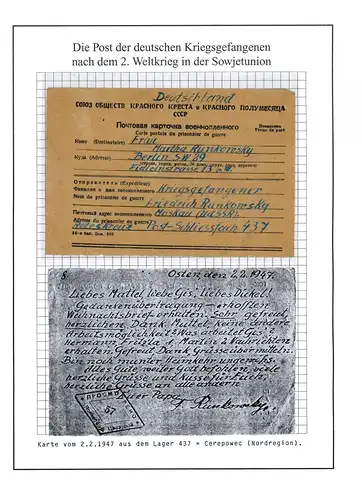 Die Post der deutschen Kriegsgefangenen
nach dem 2. Weltkrieg in der Sowjetunion
Deutschland
СОЮЗ ОБЩЕСТВ КРАСНОГО КРЕСТА и КРАСНОГО ПОЛУМЕСЯЦА
СССР
Почтовая карточка военнопленного
Carte postale du prisonnier de guerre
Бесплатно
Franc de port
Кому (Destinataire) Frau
Martha Runkowsky
Куда (Adresse) Berlin SW 29
Fidicinstrasse 13
Отправитель (Expéditeur)
Фамилия и имя военнопленного Kriegsgefangener
Nom du prisonnier de guerre
Friedrich Runkowsky
Почтовый адрес военнопленного Moskau (UdSSR)
Adresse du prisonnier de guerre
Rotes Kreuz Post-Schliessfach 437
Osten, den 2.2.1947.
Liebes Muttel, liebe Gis., liebes Dickel!
Gedankenübertragung - erhofften
Weihnachtsbrief erhalten. Sehr gefreut,
herzlichen Dank Muttel, keine andere
Arbeitsmöglichkeit? Was arbeitet Gis.?
Hermann Fritzla u. Martin 2 Nachrichten
erhalten. Gefreut. Dank, Grüsse übermitteln.
Bin noch munter.
Alles Gute, weiter Gott befohlen, viele
herzliche Grüsse und Küsse für Euch,
herzliche Grüsse an alle andern
Euer Papa
F. Runkowsky.
Karte vom 2.2.1947 aus dem Lager 437 = Cerepowec (Nordregion).